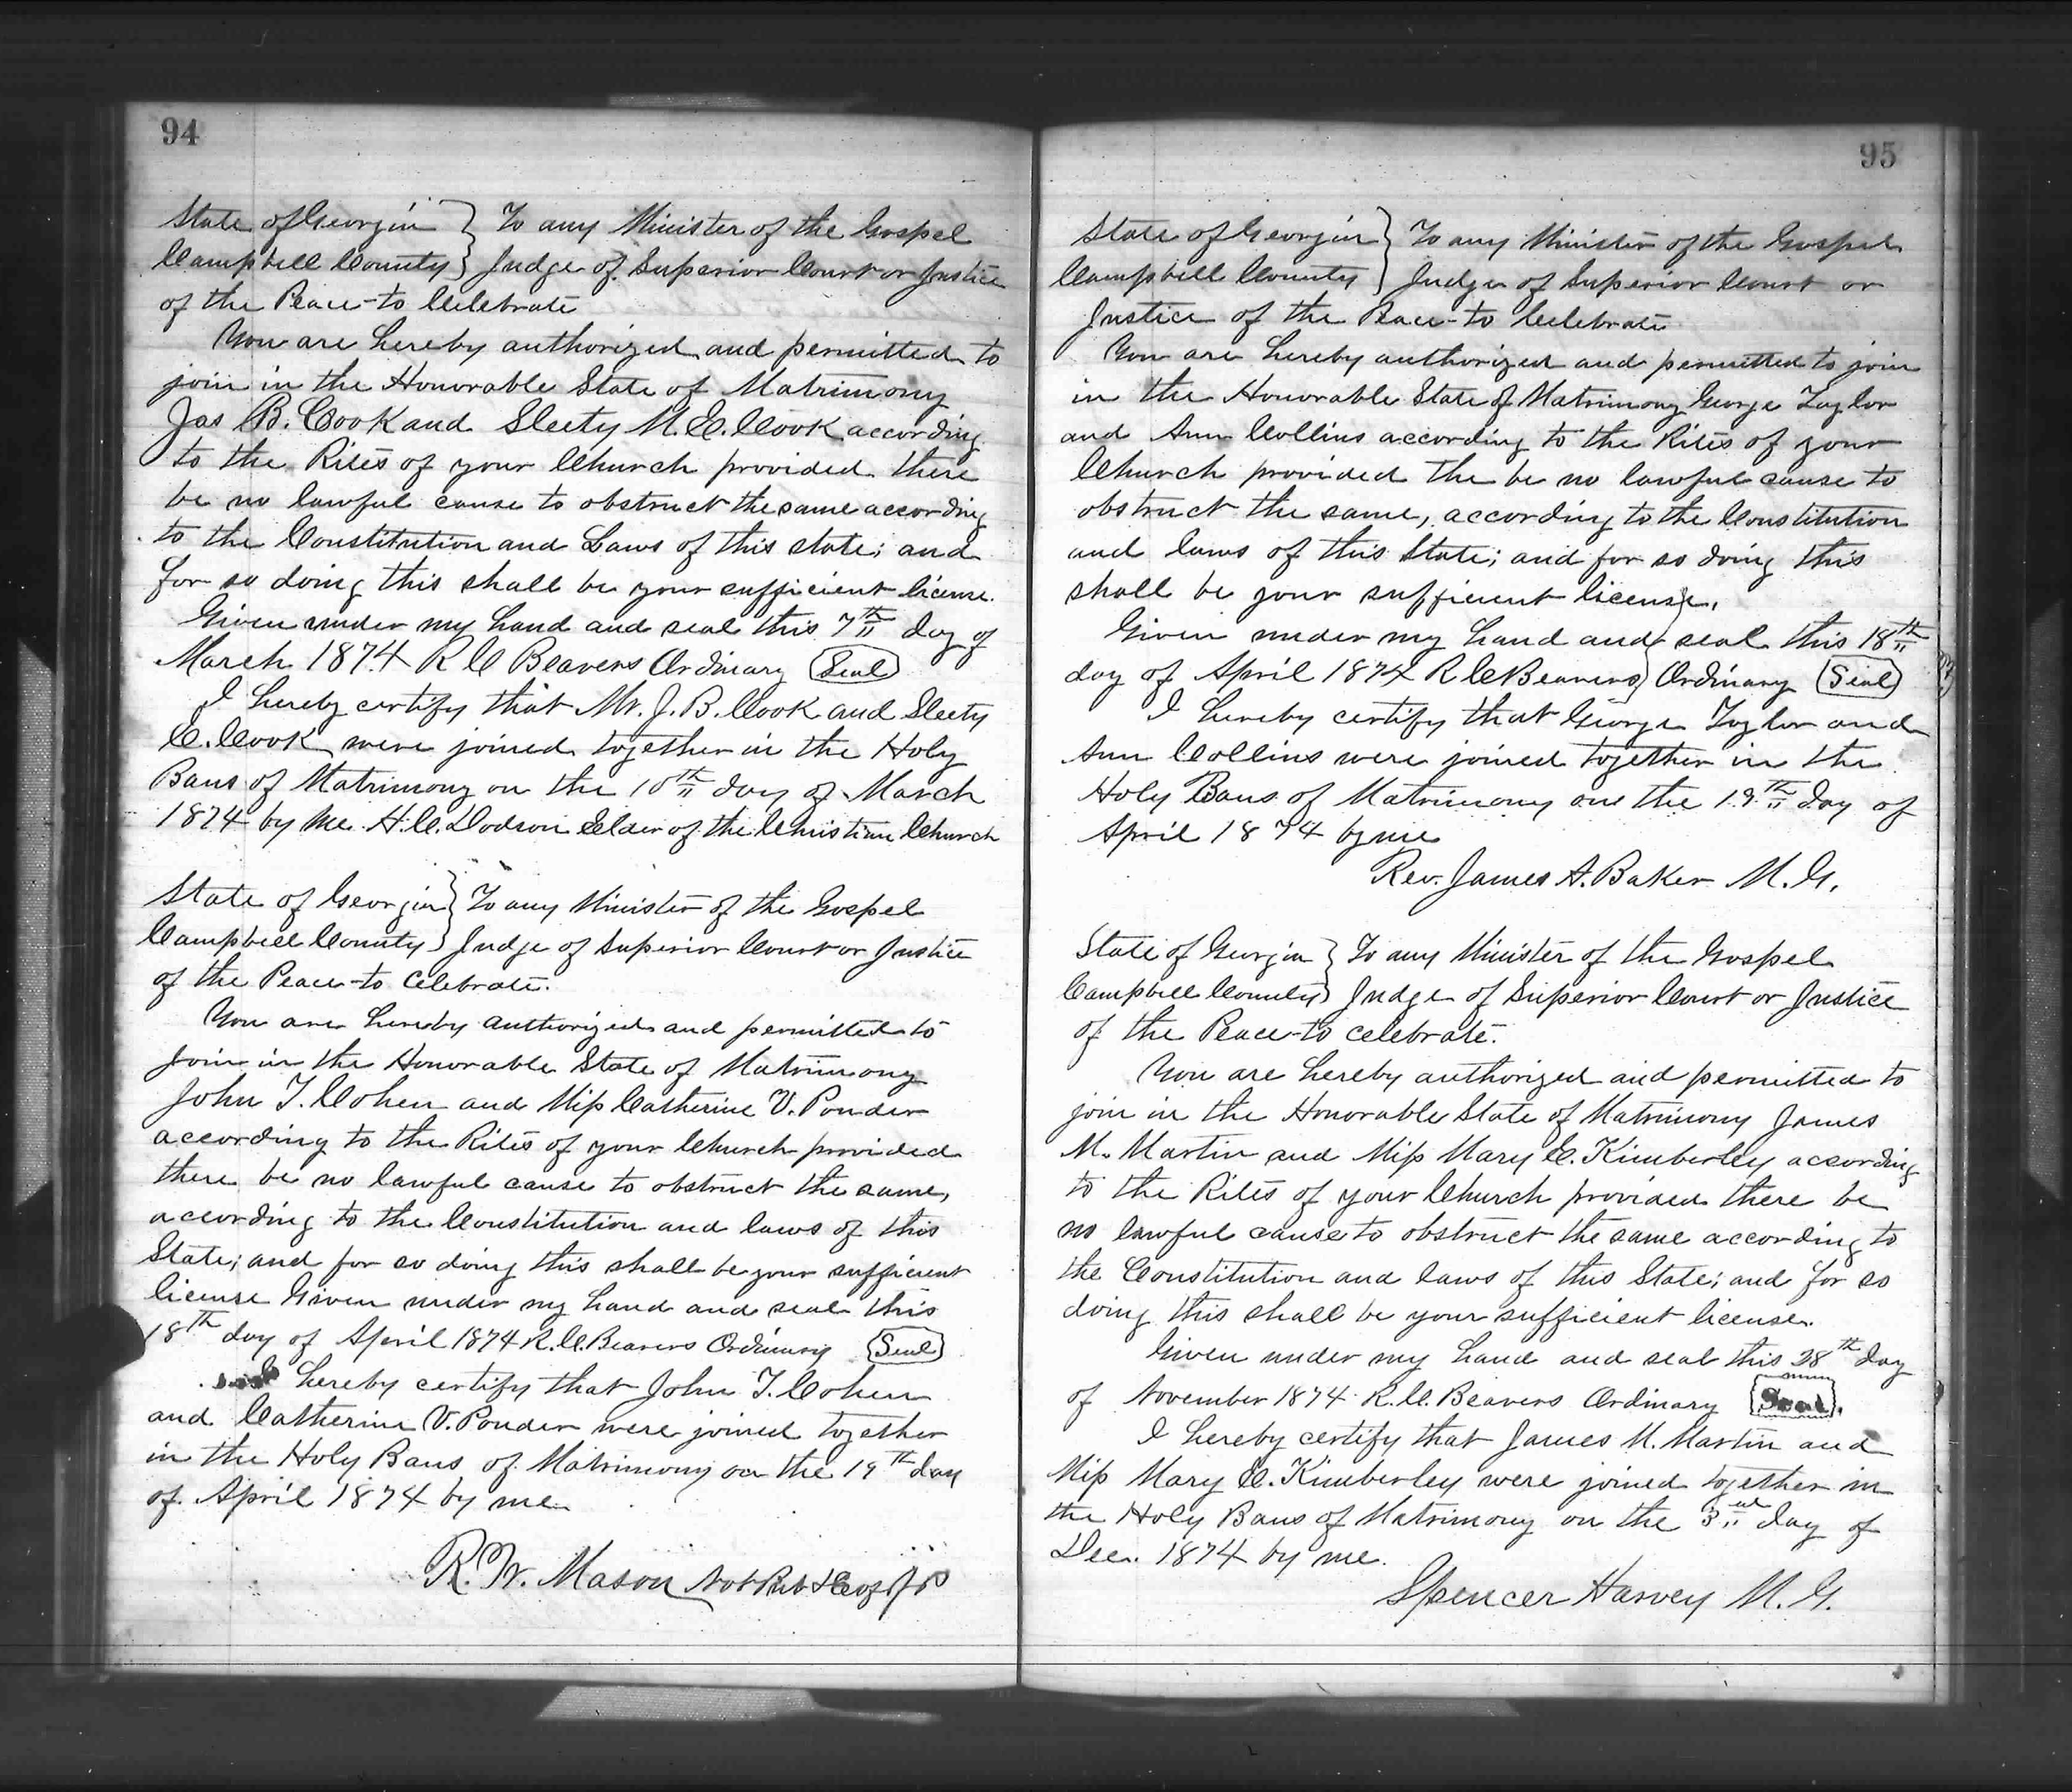 94
State of Georgia } To any Minister of the Gospel
Campbell County } Judge of Superior Court or Justice
of the Peace to Celebrate
You are hereby authorized and permitted to
join in the Honorable State of Matrimony
Jas B. Cook and Sleety M. E. Cook according
to the Rites of your Church provided there
be no lawful cause to obstruct the same according
to the Constitution and Laws of this state; and
for so doing this shall be your sufficient license.
Given under my hand and seal this 7th day of
March 1874 R C Beavers Ordinary (Seal)
I hereby certify that Mr. J. B. Cook and Sleety
E. Cook were joined together in the Holy
Bans of Matrimony on the 10th day of March
1874 by me H. C. Dodson Elder of the Christian Church
State of Georgia } To any Minister of the Gospel
Campbell County } Judge of Superior Court or Justice
of the Peace to Celebrate.
You are hereby authorized and permitted to
join in the Honorable State of Matrimony
John T. Cohen and Miss Catherine V. Ponder
according to the Rites of your Church provided
there be no lawful cause to obstruct the same,
according to the Constitution and laws of this
State; and for so doing this shall be your sufficient
license Given under my hand and seal this
18th day of April 1874 R. C. Beavers Ordinary (Seal)
I hereby certify that John T. Cohen
and Catherine V. Ponder were joined together
in the Holy Bans of Matrimony on the 19th day
of April 1874 by me
R. W. Mason Not Pub & Exof JP
95
State of Georgia } To any Minister of the Gospel
Campbell County } Judge of Superior Court or
Justice of the Peace to Celebrate
You are hereby authorized and permitted to join
in the Honorable State of Matrimony George Taylor
and Ann Collins according to the Rites of your
Church provided the be no lawful cause to
obstruct the same, according to the Constitution
and laws of this State; and for so doing this
shall be your sufficient license.
Given under my hand and seal this 18th
day of April 1874 R C Beavers Ordinary (Seal)
I hereby certify that George Taylor and
Ann Collins were joined together in the
Holy Bans of Matrimony one the 19th day of
April 1874 by me
Rev. James A. Baker M. G.
State of Georgia } To any Minister of the Gospel
Campbell County } Judge of Superior Court or Justice
of the Peace to celebrate.
You are hereby authorized and permitted to
join in the Honorable State of Matrimony James
M. Martin and Miss Mary E. Kimberley according
to the Rites of your Church provided there be
no lawful cause to obstruct the same according to
the Constitution and laws of this State; and for so
doing this shall be your sufficient license.
Given under my hand and seal this 28th day
of November 1874 R. C. Beavers Ordinary (Seal).
I hereby certify that James M. Martin and
Miss Mary E. Kimberley were joined together in
the Holy Bans of Matrimony on the 3rd day of
Dec. 1874 by me.
Spencer Harvey M. G.